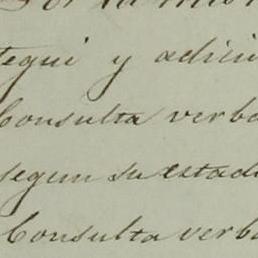 tegui y adici
Consulta verba
segun su estad
Consulta verba